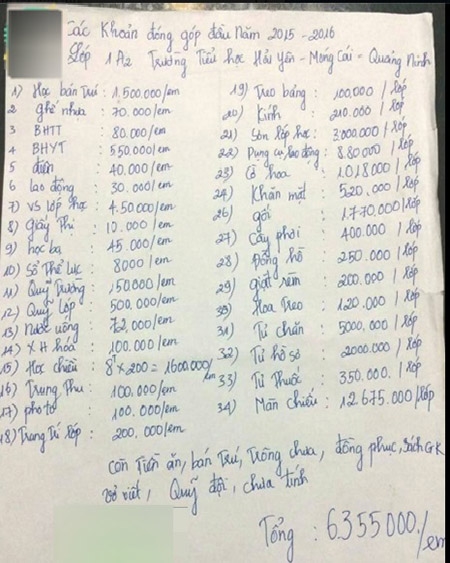 Các Khoản đóng góp đầu Năm 2015 - 2016
Lớp 1A2 Trường Tiểu học Hải Yên - Móng Cái - Quảng Ninh
1) Học bán trú : 1.500.000/em
2 ghế nhựa : 70.000/em
3 BHTT : 80.000/em
4 BHYT : 550.000/em
5 điện : 40.000/em
6 lao động : 30.000/em
7) VS lớp học : 4.50.000/em
8) Giấy Thi : 10.000/em
9) học bạ : 45.000/em
10) Sổ Thể lực : 8000/em
11) Quỹ Trường : 150000/em
12) Quỹ Lớp : 500.000/em
13) Nước uống : 72,000/em
14) XH hóa : 100.000/em
15) Học chiều : 8T x 200 = 1600.000/em
16) Trung Thu : 100.000/em
17) photo : 100.000/em
18) Trang Trí lớp : 200.000/em
19) Treo bảng : 100,000/lớp
20) Kính : 210.000/lớp
21) Sơn lớp học : 3.000000/lớp
22) Dụng cụ lao động : 8.80000/lớp
23) Cờ hoa : 1.018000/lớp
24) Khăn mặt : 520.000/lớp
26) gối : 1.770.000/lớp
27) Cây phơi : 400.000/lớp
28) Đồng hồ : 250.000/lớp
29) giặt rèm : 200.000/lớp
30) Hoa Treo : 120.000/lớp
31) Tủ chăn : 5000,000/lớp
32) Tủ hồ sơ : 2000000/lớp
33) Tủ Thuốc : 350.000/lớp
34) Màn chiếu : 12.675.000/lớp
còn Tiền ăn, bán Trú, Trông chưa, đồng phục, Sách GK
vở viết, Quỹ đội, chưa tính
Tổng : 6355000./em